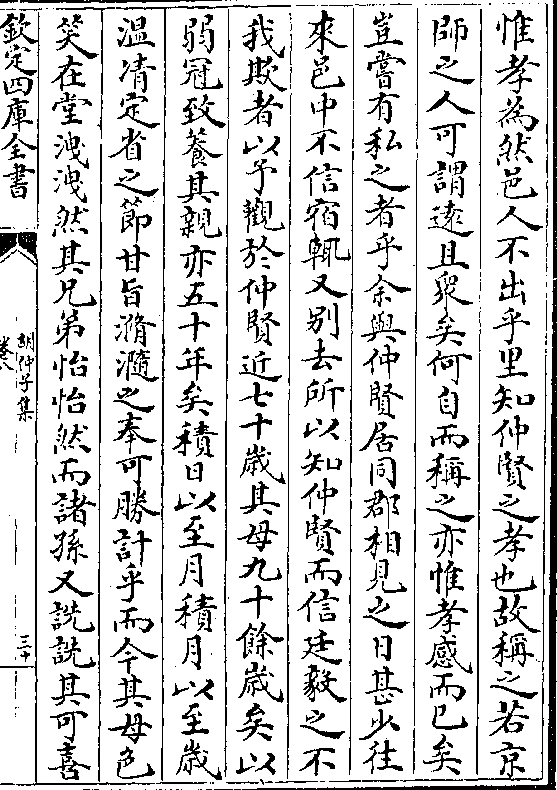 惟孝為然邑人不出乎里知仲賢之孝也故稱之若京
師之人可謂逺且衆矣何自而稱之亦惟孝感而已矣
豈嘗有私之者乎余與仲賢居同郡相見之日甚少往
來邑中不信宿輒又别去所以知仲賢而信廷毅之不
我欺者以予觀於仲賢近七十歲其母九十餘歲矣以
弱冠致養其親亦五十年矣積日以至月積月以至歲
温凊定省之節甘旨滫瀡之奉可勝計乎而今其母色
笑在堂洩洩然其兄弟怡怡然而諸孫又詵詵其可喜
欽定四庫全書
胡仲子集
卷八
三十